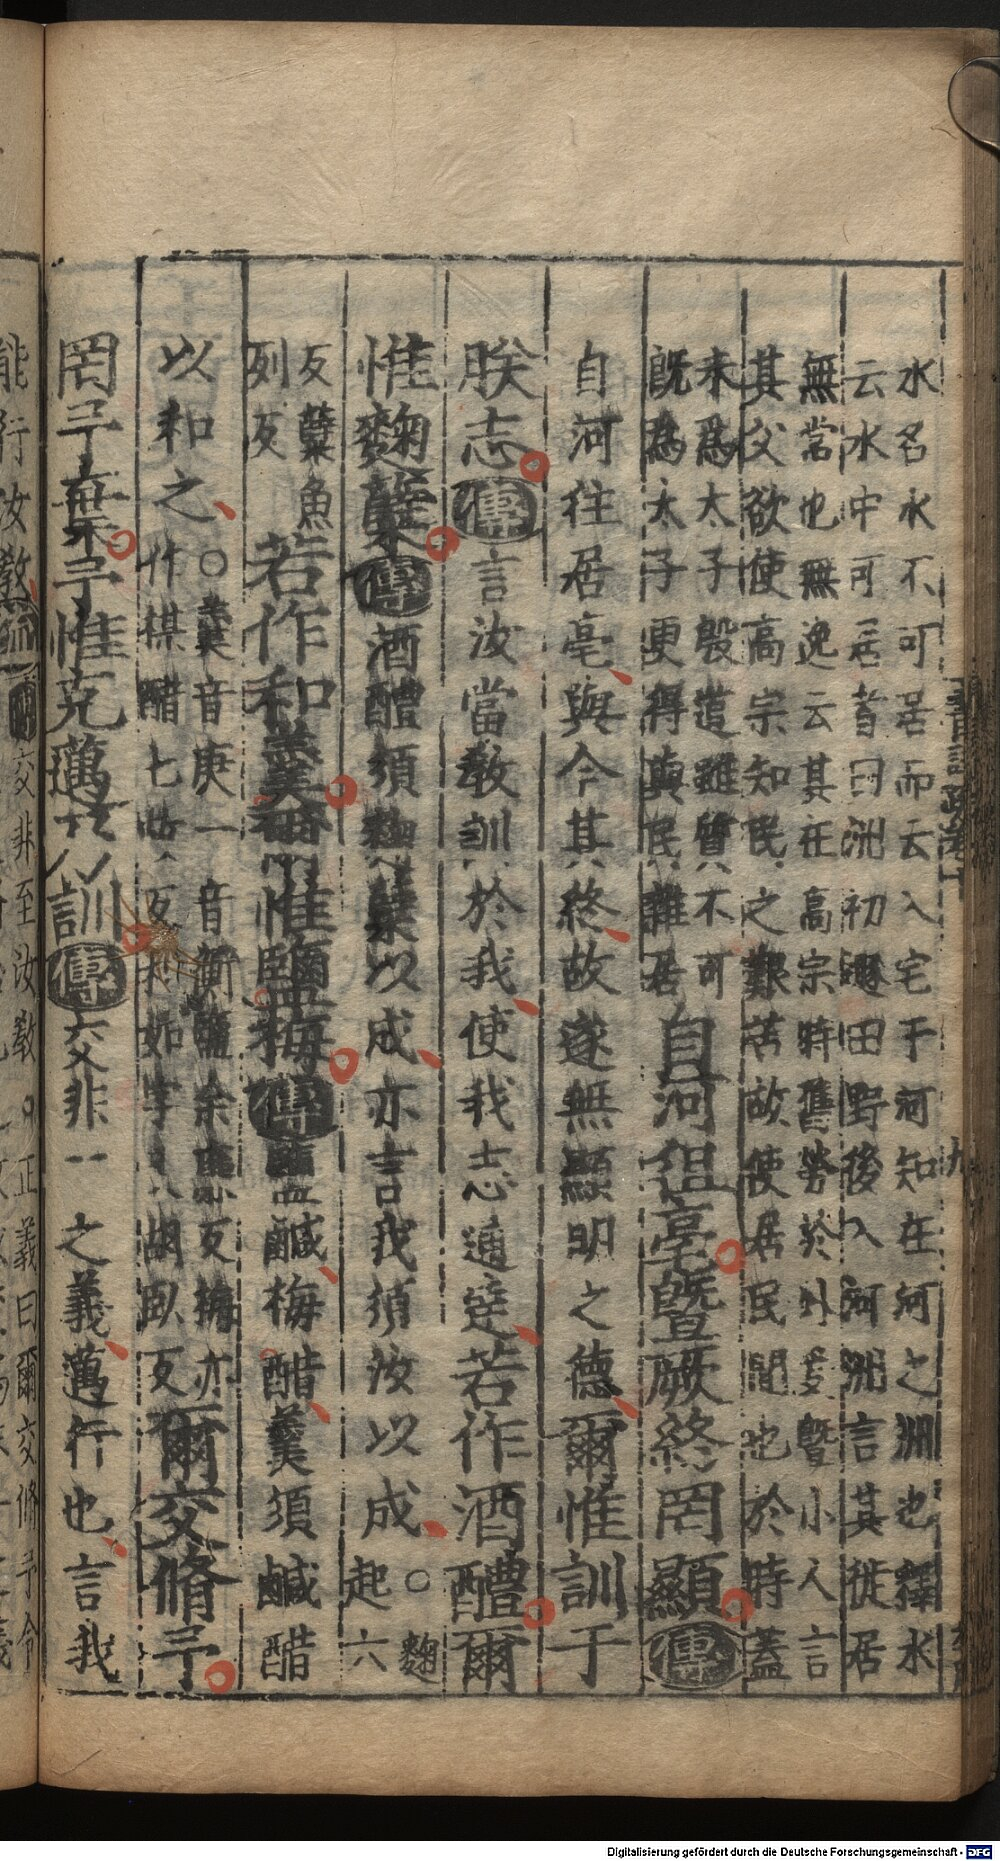 水名水不可居而云入宅于河知在河之洲也釋水
云水中可居者曰洲初遯田野後入河洲言其徙居
無常也無逸云其在高宗時舊勞於外爰暨小人言
其父欲使高宗知民之艱苦故使居民間也於時蓋
未為太子殷道雖質不可
既為太子更得與民雜居
自河徂亳暨厥終罔顯傳
自河往居亳與今其終故遂無顯明之德爾惟訓于
朕志傳言汝當教訓於我使我志通達若作酒醴爾
惟麴糵傳酒醴須麴糵以成亦言我須汝以成○麴
起六
反糵魚
列反
若作和羹爾惟鹽梅傳鹽鹹梅醋羹須鹹醋
以和之○羹音庚一音衡鹽余廉反梅亦
作楳醋七故反和如字又胡臥反
爾交脩予
罔予棄予惟克邁乃訓傳交非一之義邁行也言我
能行汝教
爾交非至汝教○正義曰爾交脩予令